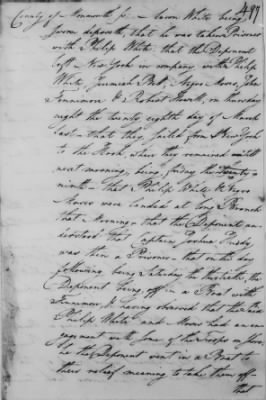 497
County of Monmouth ss. Aaron White being
sworn deposeth, that he was taken Prisoner
with Philip White, that the Deponent
left New York in company with Philip
White, Jeremiah Bell, Negro Moses, John
Fennimore & Robert Howell, on thursday
night the twenty eighth day of March
last – that they sailed from New York
to the Hook, where they remained until
next morning, being friday the twenty
ninth – that Philip White & Negro
Moses were landed at Long Branch
that Morning – that the Deponent un-
derstood that Captain Joshua Huddy
was then a Prisoner – that on the day
following being Saturday the thirtieth, the
Deponent being off in a Boat with
Fennimore, & having observed that the said
Philip White and Moses had an en-
gagement with some of the troops on shore,
he the Deponent went in a Boat to
their relief meaning to take them off
that